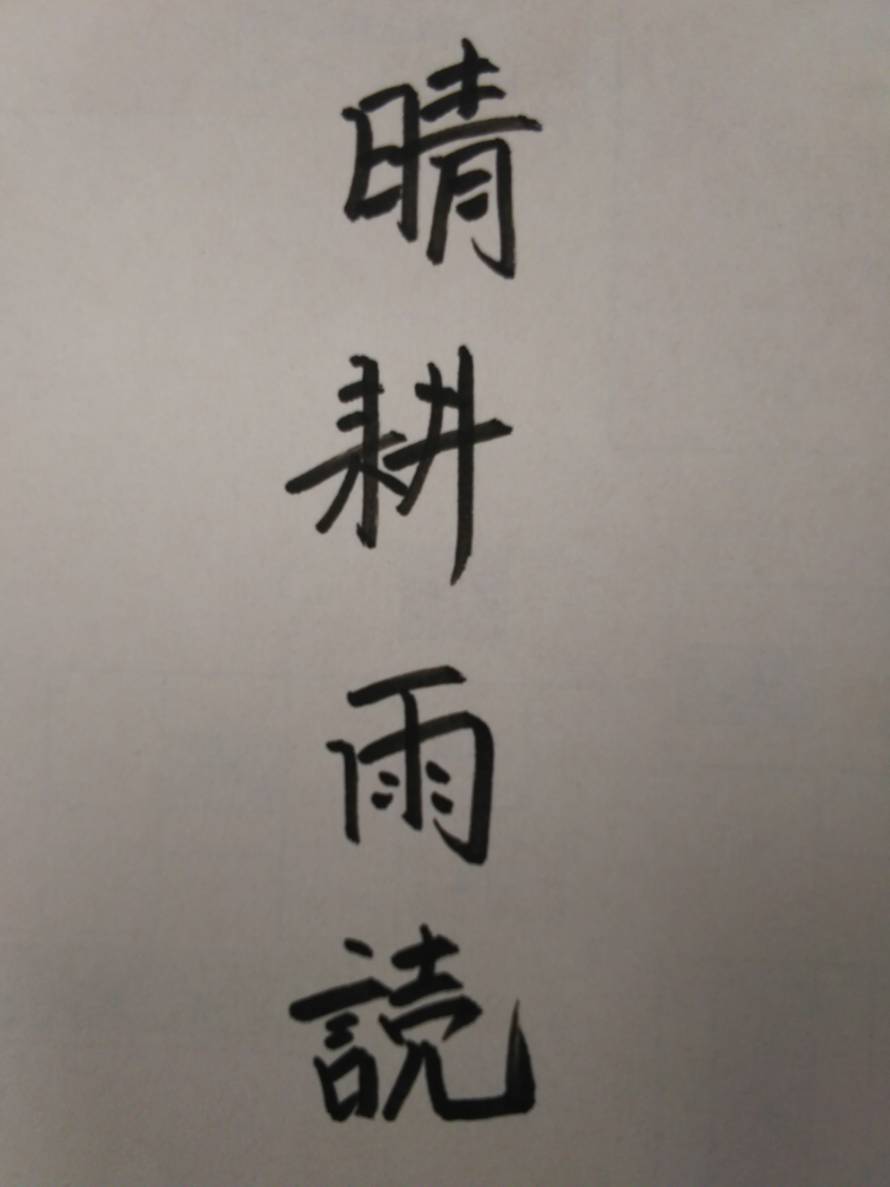 晴耕雨読